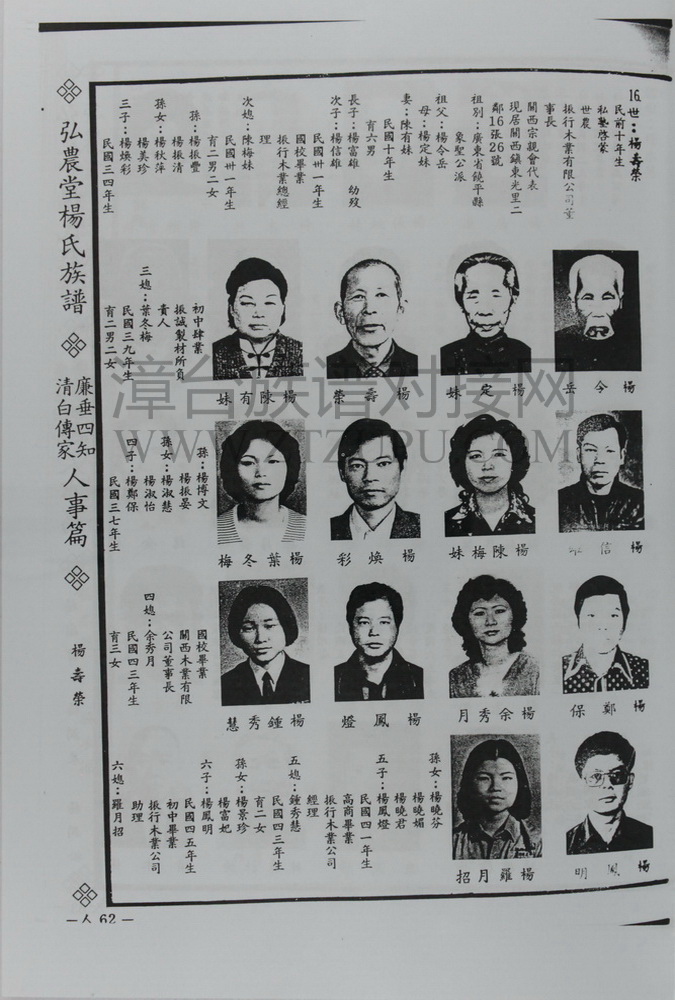 16世：楊壽榮
民前十年生
私塾啓蒙
世農
振行木業有限公司董
事長
關西宗親會代表
現居關西鎮東光里二
鄰16張26號
祖別：廣東省饒平縣
象聖公派
祖父：楊令岳
母：楊定妹
妻：陳有妹
民國十年生
育六男
長子：楊富雄 幼歿
次子：楊信雄
民國卅一年生
國校畢業
振行木業總經
理
次媳：陳梅妹
民國卅一年生
育二男二女
孫：楊振豐
楊振清
孫女：楊秋萍
楊美珍
三子：楊煥彩
民國三四年生
初中肄業
振誠製材所負
責人
三媳：葉冬梅
民國三九年生
育二男二女
孫：楊博文
楊振晏
孫女：楊淑慧
楊淑怡
四子：楊鄭保
民國三七年生
國校畢業
關西木業有限
公司董事長
四媳：余秀月
民國四三年生
育三女
孫女：楊曉芬
楊曉媚
楊曉君
五子：楊鳳燈
民國四一年生
高商畢業
振行木業公司
經理
五媳：鍾秀慧
民國四三年生
育二女
孫女：楊景珍
楊富妃
六子：楊鳳明
民國四五年生
初中畢業
振行木業公司
助理
六媳：羅月招
楊令岳
楊定妹
楊壽榮
楊陳有妹
楊信雄
楊陳梅妹
楊煥彩
楊葉冬梅
楊鄭保
楊余秀月
楊鳳燈
楊鍾秀慧
楊鳳明
楊羅月招
弘農堂楊氏族譜
廉垂四知
清白傳家
人事篇
楊壽榮
—人 62—
漳台族谱对接网
WWW.ZTZUPU.COM